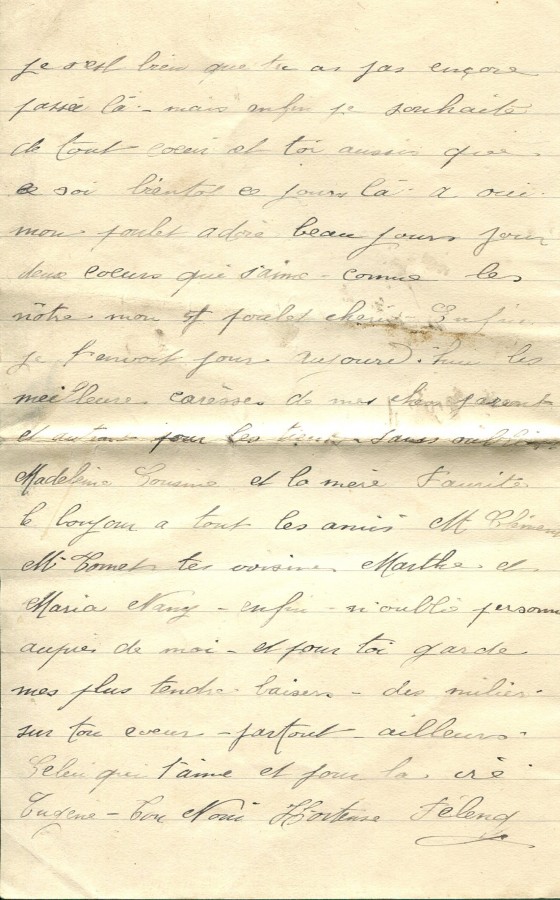 je s'est bien que tu as pas encore
passée là - mais enfin je souhaite
de tout coeur et toi aussis que
ce soi bientot ce jours là. a oui
mon poulet adoré beau jours pour
deux coeurs qui s'aime - comme les
nôtre mon poulet cherit - Enfin
je t'envoit pour aujourd'hui les
meilleure caresses de mes chers parent
et autrui pour les tiens - sans oublier
Madeleine Cousine et la mère Faurite
le bonjour a tout les amis M Clément
Mr Comet tes voisines Marthe et
Maria Nany - enfin - n'oublie personne
auprès de moi - et pour toi garde
mes plus tendre baisers - des milier
sur ton coeur - partout - ailleurs.
Celui qui t'aime et pour la vie
Eugene - Ton Noni Hortense Féleng